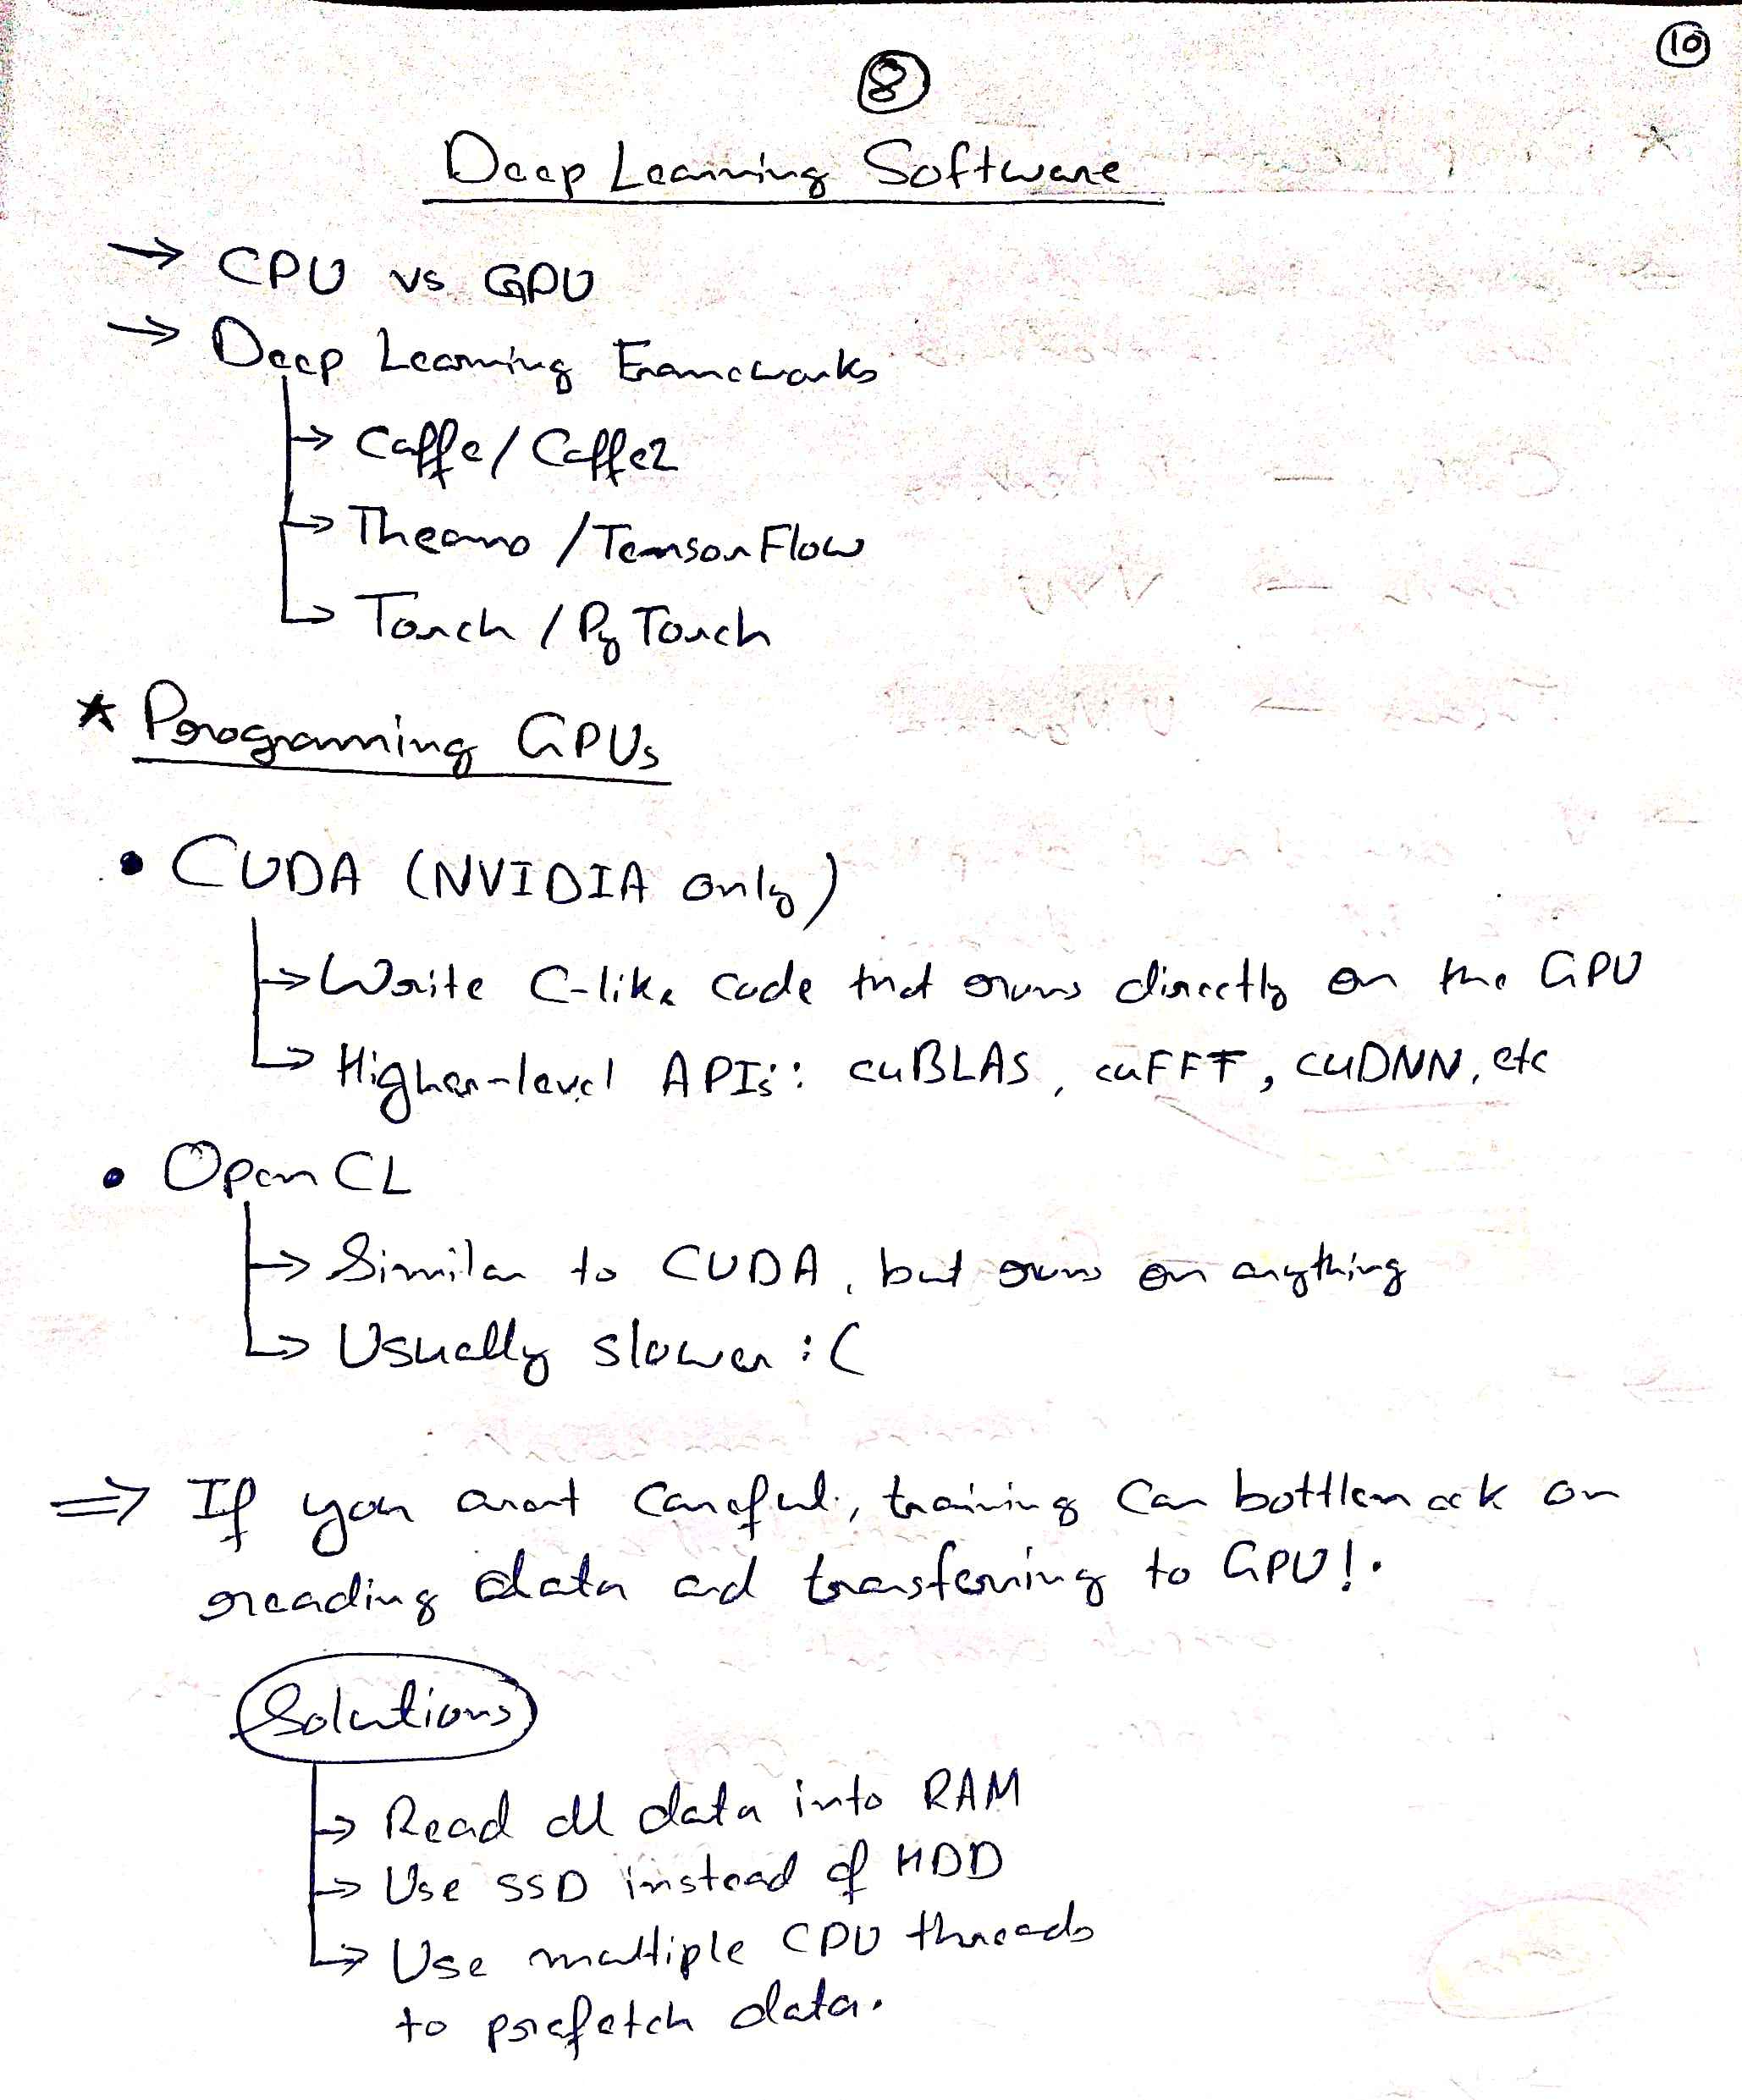 10
8
Deep Learning Software
→ CPU vs GPU
→ Deep Learning Frameworks
→ Caffe / Caffe2
→ Theano / TensorFlow
→ Torch / PyTorch
* Programing GPUs
• CUDA (NVIDIA only)
→ Write C-like code that runs directly on the GPU
→ Higher-level APIs: cuBLAS, cuFFT, cuDNN, etc
• OpenCL
→ Similar to CUDA, but runs on anything
→ Usually slower :(
⇒ If you arent careful, training can bottleneck on
reading data and transferring to GPU!.
Solutions
→ Read all data into RAM
→ Use SSD instead of HDD
→ Use multiple CPU threads
to prefetch data.